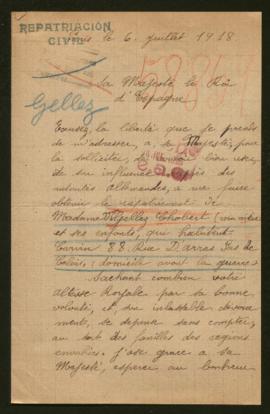 REPATRIACIÓN
CIVIL
Paris le 6 juillet 1918
Gellez
Sa Majesté le Roi
d'Espagne
Excusez la liberté que je prends
de m'adresser, a sa Majesté, pour
la solliciter de vouloir bien user
de son influence auprès des
autorités Allemandes, a me faire
obtenir le rapatriement de
Madame Gellez Chobert
et ses enfants, qui habitent
88, Rue D'arras Pas de
Calais, (domicile avant la guerre)
Sachant combien votre
altesse Royale par sa bonne
volonté, et, son inlassable dévoue
ment, se depense sans compter,
au sort des familles des regions
envahies. J'ose grace a sa
Majesté, espérer au bonheur